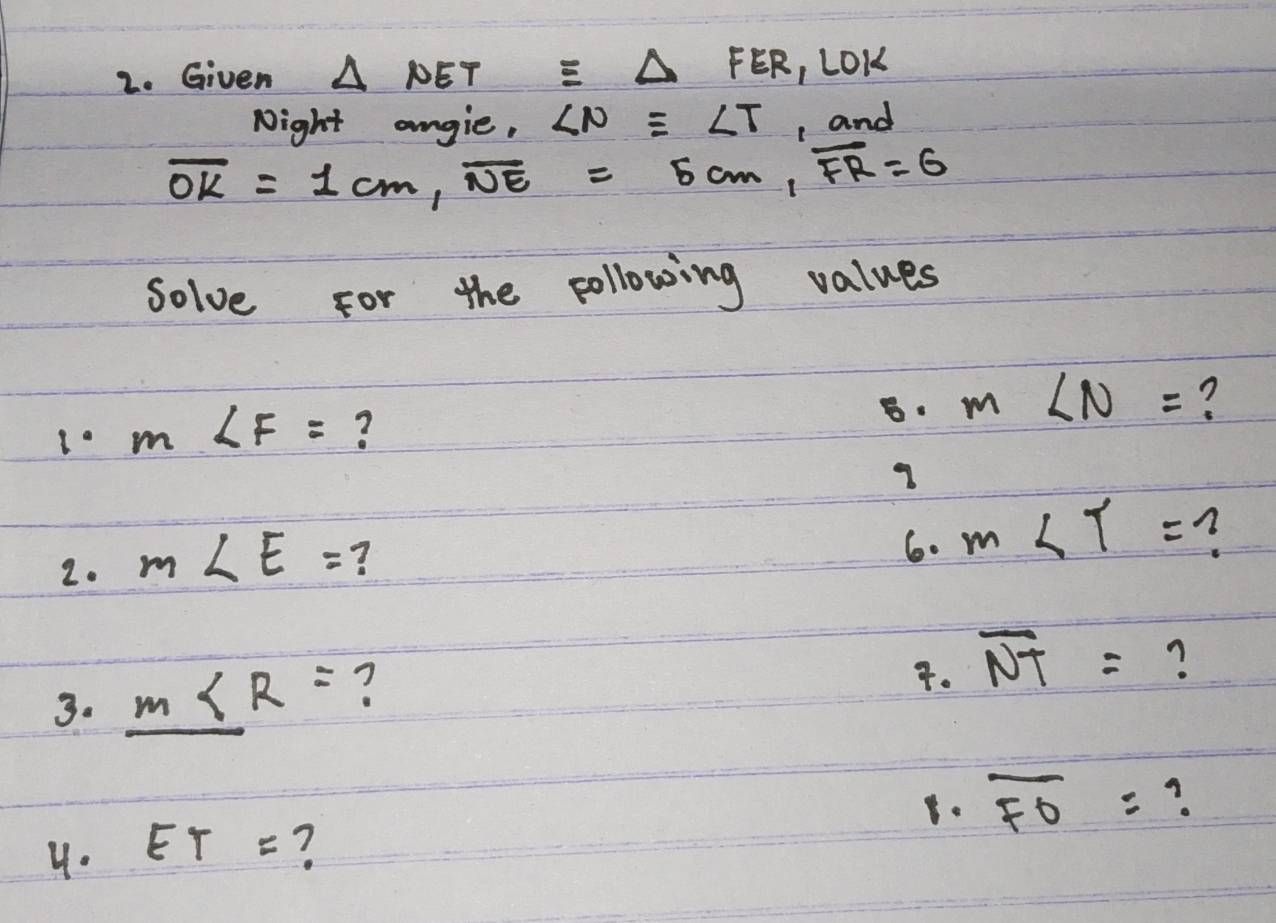 2. Given Δ NET ≡ Δ FER, LOK
Night angie, ∠N ≡ ∠T, and
OK = 1 cm, NE = 5 cm, FR = 6
Solve For the Following values
1. m ∠F = ?
5. m ∠N = ?
2. m ∠E = ?
6. m ∠T = ?
3. m ∠R = ?
7. NT = ?
4. ET = ?
8. FO = ?